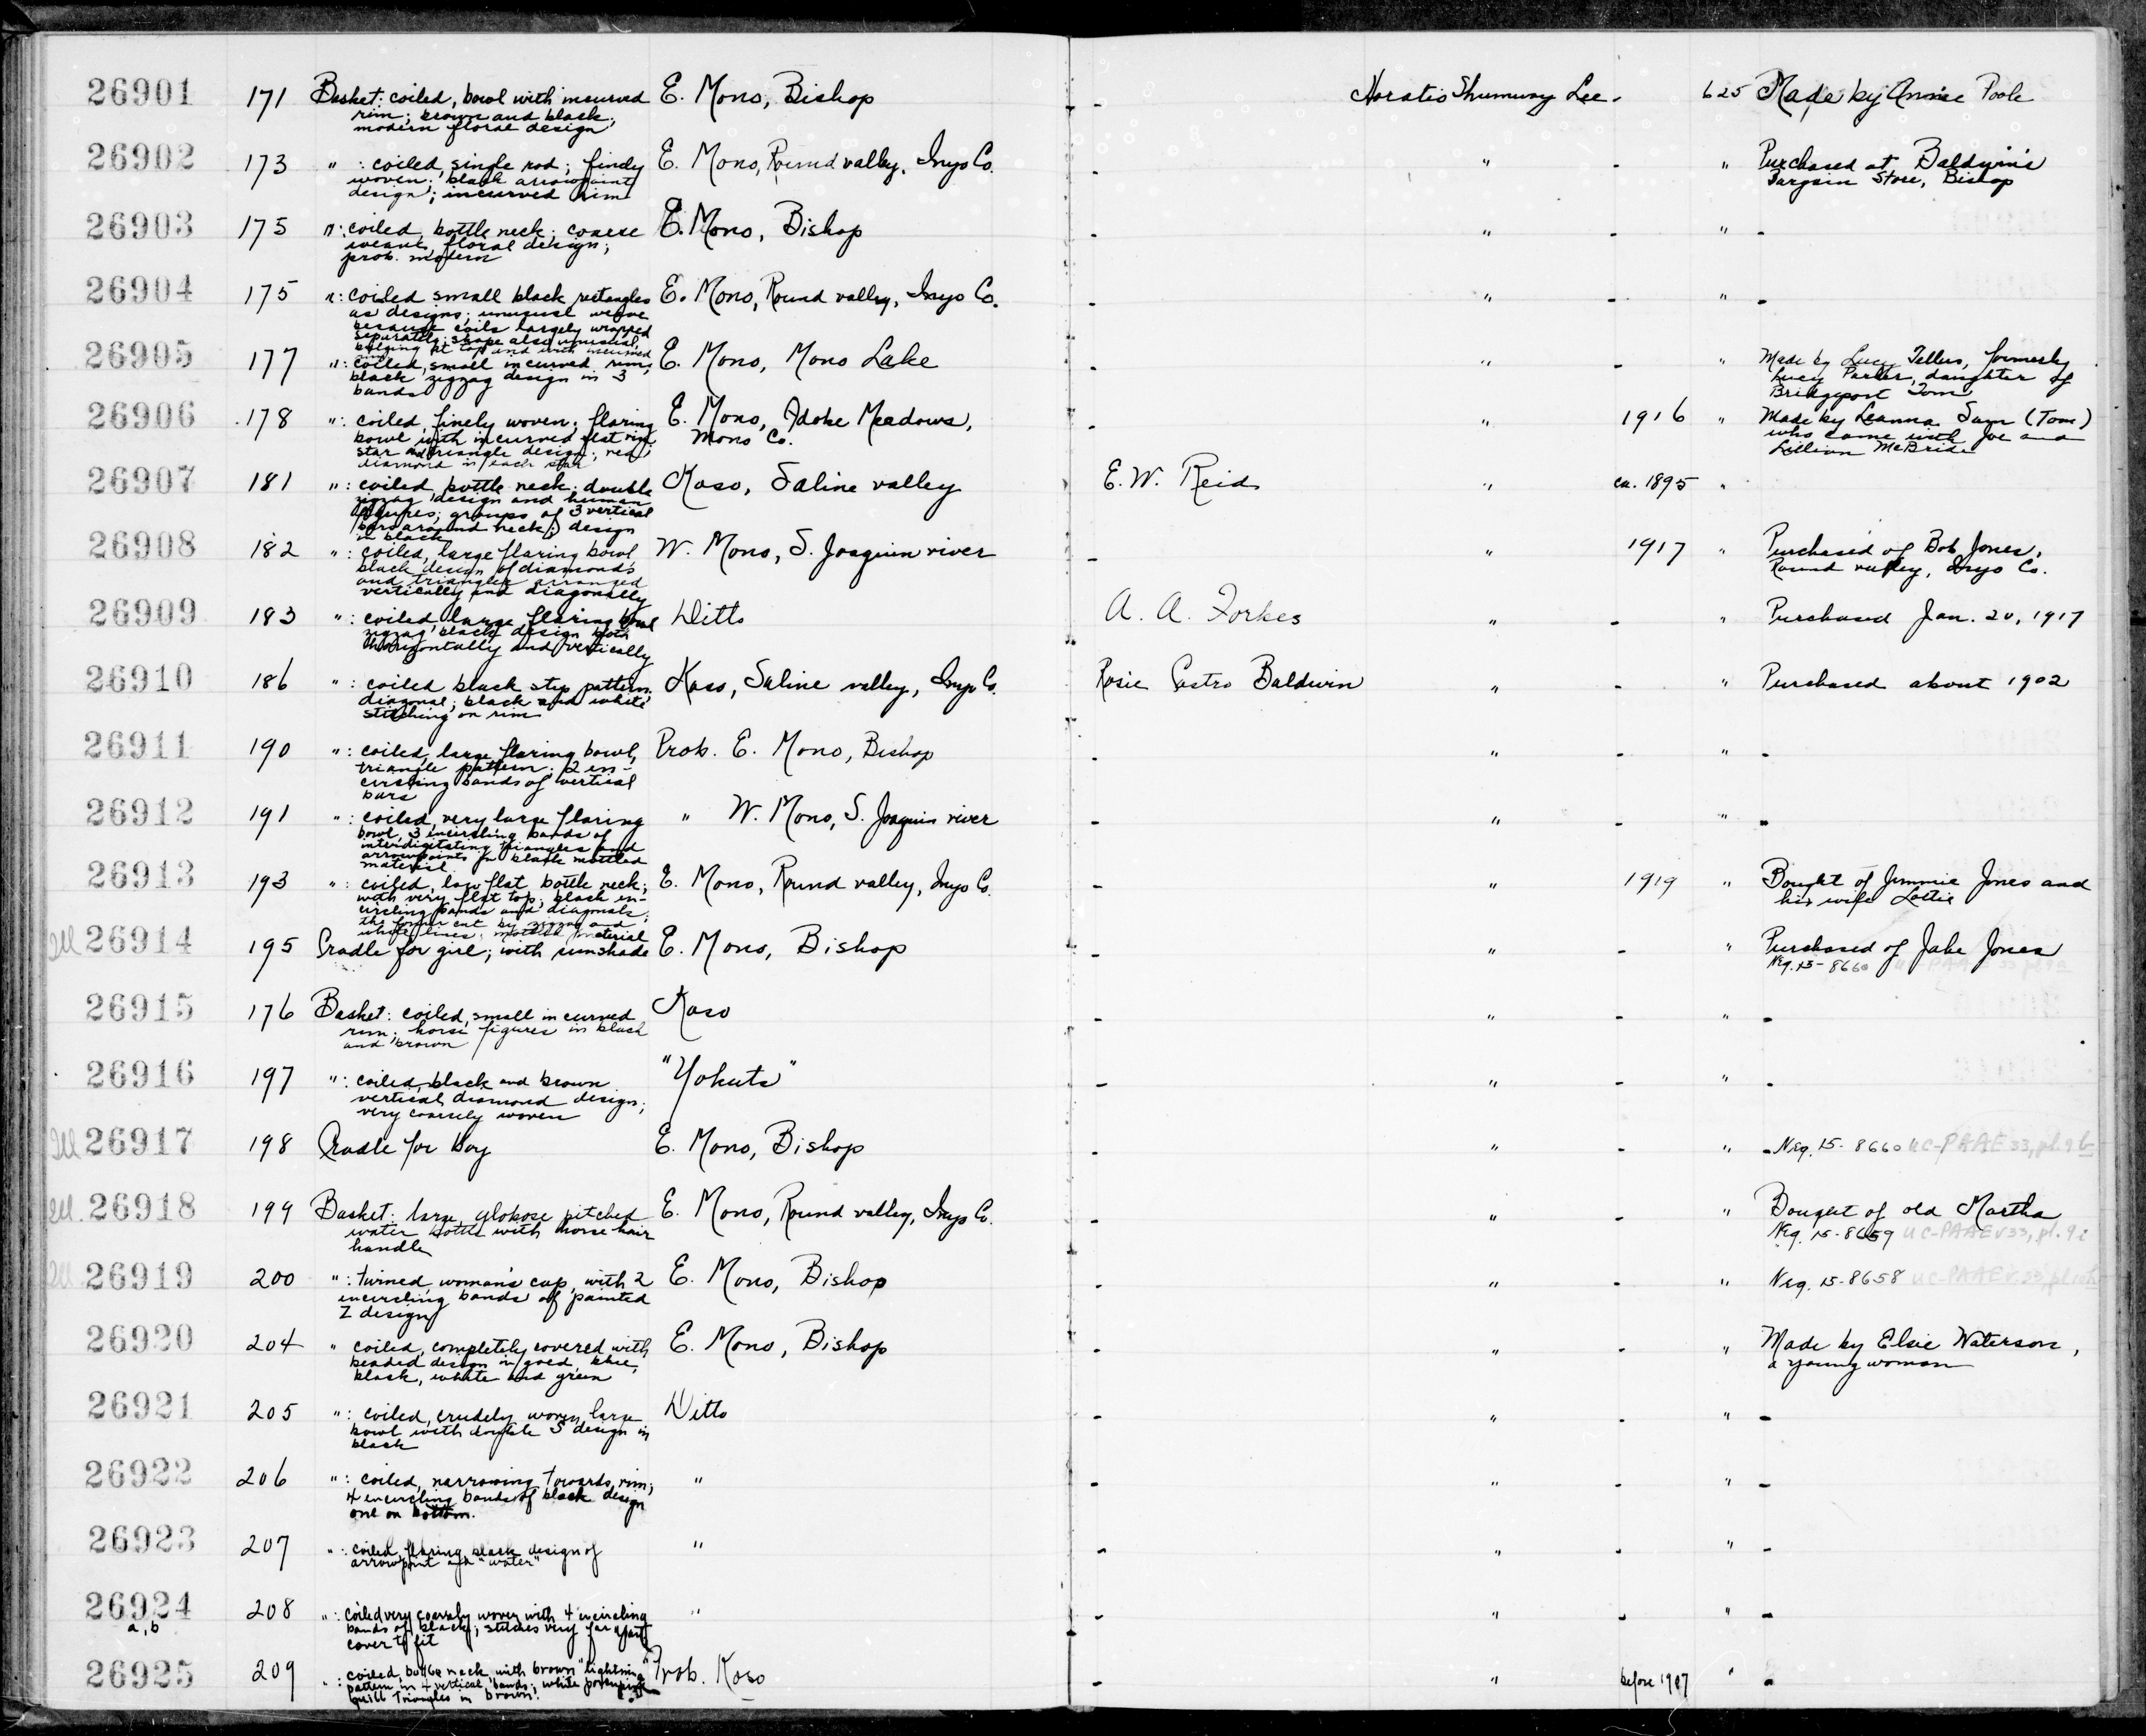 26901 171 Basket: coiled, bowl with incurved E. Mono, Bishop - Horatio Shumway Lee - 625 Made by Annie Poole
rim; brown and black;
modern floral design
26902 173 " : coiled, single rod; finely E. Mono, Round valley, Inyo Co. - " - " Purchased at Baldwin's
woven; black arrowpoint Bargain Store, Bishop
design; incurved rim
26903 175 ": coiled, bottle neck; coarse E. Mono, Bishop - " - " -
weave, floral design;
prob. modern
26904 175 ": coiled small black rectangles E. Mono, Round valley, Inyo Co. - " - " -
as designs; unusual weave
because coils largely wrapped
separately; shape also unusual,
bulging at top and with incurved
rim
26905 177 ": coiled, small incurved rim, E. Mono, Mono Lake - " - " Made by Lucy Tellus, formerly
black zigzag design in 3 Lucy Parker, daughter of
bands Bridgeport Tom
26906 178 ": coiled, finely woven; flaring E. Mono, Adobe Meadows, - " 1916 " Made by Leanna Sam (Tom)
bowl with incurved flat rim Mono Co. who came with Joe and
star and triangle design; red Lillian McBride
diamond in each star
26907 181 ": coiled bottle neck; double Koso, Saline valley E. W. Reid " ca. 1895 "
zigzag design and human
figures; groups of 3 vertical
bars around neck; design
in black
26908 182 ": coiled, large flaring bowl W. Mono, S. Joaquin river - " 1917 " Purchased of Bob Jones,
black design of diamonds Round valley, Inyo Co.
and triangles arranged
vertically and diagonally
26909 183 ": coiled large flaring bowl Ditto A. A. Forbes " - " Purchased Jan. 20, 1917
zigzag black design both
horizontally and vertically
26910 186 ": coiled black step pattern, Koso, Saline valley, Inyo Co. Rosie Castro Baldwin " - " Purchased about 1902
diagonal; black and white
stitching on rim
26911 190 ": coiled, large flaring bowl, Prob. E. Mono, Bishop - " - " -
triangle pattern; 2 en-
circling bands of vertical
bars
26912 191 ": coiled, very large flaring " W. Mono, S. Joaquin river - " - " -
bowl, 3 encircling bands of
interdigitating triangles and
arrowpoints in black mottled
material
26913 193 ": coiled, low flat bottle neck; E. Mono, Round valley, Inyo Co. - " 1919 " Bought of Jimmie Jones and
with very flat top; black en- his wife Lottie
circling bands and diagonals;
the former cut by zigzag and
white lines; mottled material
Ill 26914 195 Cradle for girl; with sunshade E. Mono, Bishop - " - " Purchased of Jake Jones
Neg. 15-8660
26915 176 Basket: coiled, small incurved Koso - " - " -
rim; horse figures in black
and brown
26916 197 ": coiled, black and brown "Yokuts" - " - " -
vertical diamond design;
very coarsely woven
Ill 26917 198 Cradle for boy E. Mono, Bishop - " - " - Neg. 15-8660 UC-PAAE 33, pl. 9 b
Ill. 26918 199 Basket: large globose pitched E. Mono, Round valley, Inyo Co. - " - " Bought of old Martha
water bottle with horse hair Neg. 15-8659 UC-PAAE v33, pl. 9 i
handle
Ill 26919 200 ": twined, woman's cap, with 2 E. Mono, Bishop - " - " Neg. 15-8658 UC-PAAE v.33, pl.
encircling bands of painted
Z design
26920 204 " coiled, completely covered with E. Mono, Bishop - " - " Made by Elsie Waterson,
beaded design in gold, blue, a young woman
black, white and green
26921 205 ": coiled, crudely woven large Ditto - " - " -
bowl with double S design in
black
26922 206 ": coiled, narrowing towards rim; " - " - " -
4 encircling bands of black design
one on bottom.
26923 207 ": coiled, flaring, black design of " - " - " -
arrowpoint and "water"
26924 208 ": coiled very coarsely woven with 4 encircling " - " - " -
a, b bands of black; stitches very far apart
cover to fit
26925 209 ": coiled, bottle neck, with brown "lightning" Prob. Koso - " before 1907 " -
pattern in 4 vertical bands; white porcupine
quill triangles in brown.